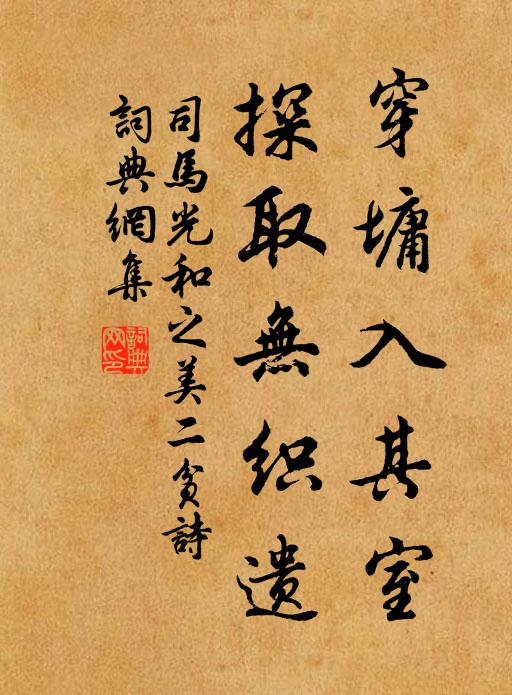 穿墉入其室
探取無织遗
司馬光和之美二貧詩
詞典網集
詞典
网印